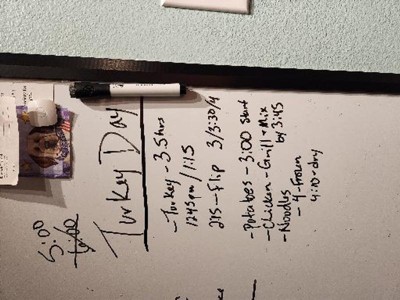 5:00
6:00
Turkey Day
- Turkey - 3.5 hrs
1245pm / 1:15
245 - Flip 3/3:30/4
- Potatoes - 3:00 start
- Chicken - Grill + Mix
by 3:45
- Noodles
- 4 From
4:10 - dry